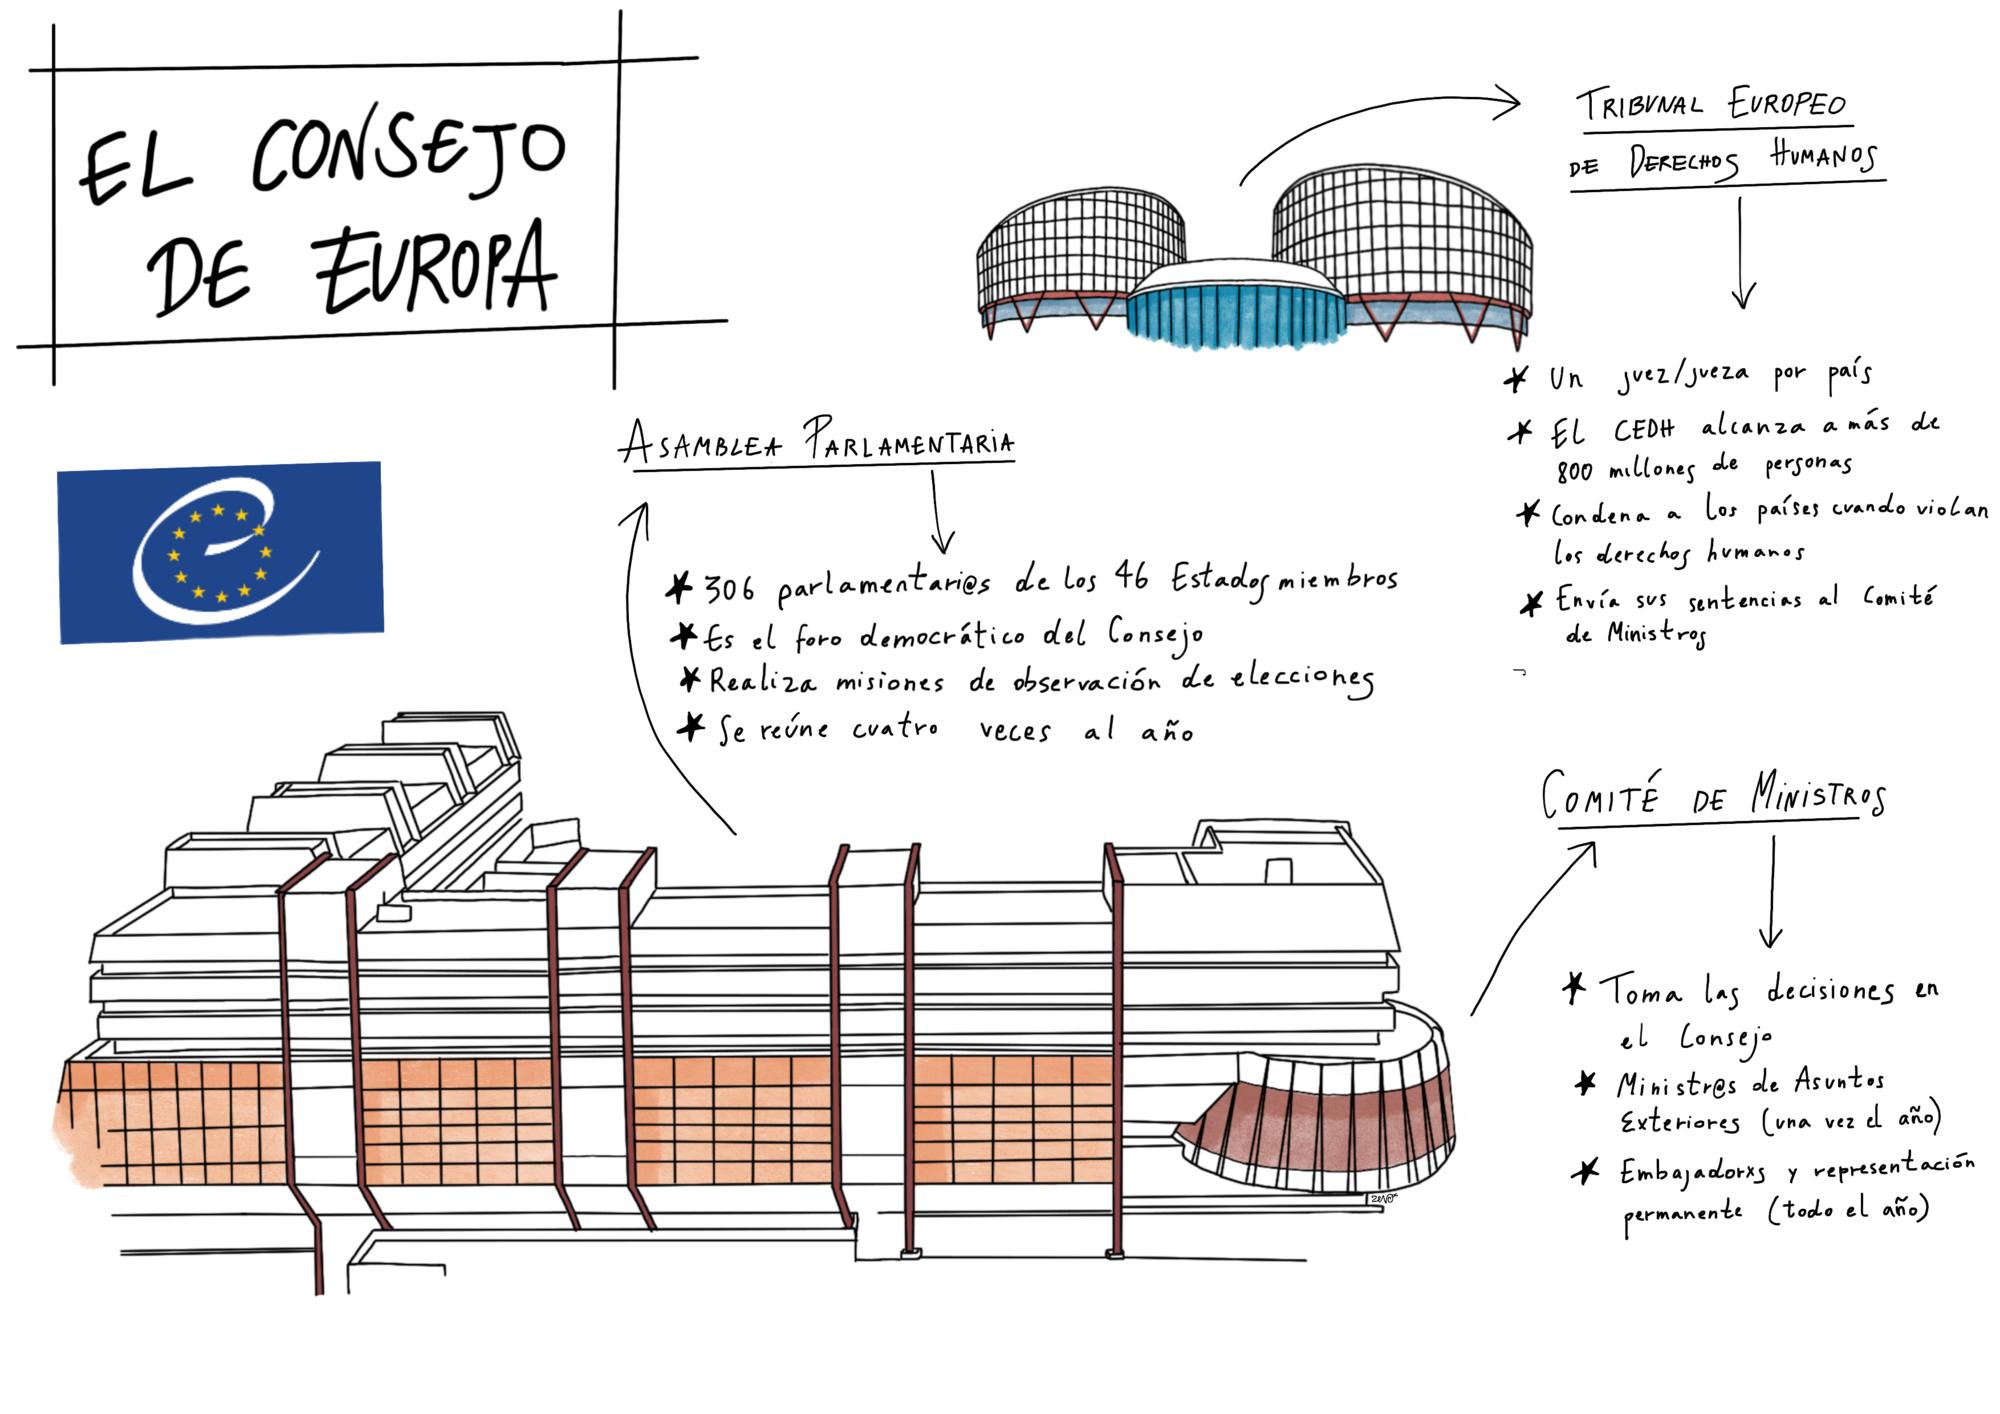 EL CONSEJO
DE EUROPA
TRIBUNAL EUROPEO
DE DERECHOS HUMANOS
★ Un juez/jueza por país
★ El CEDH alcanza a más de
800 millones de personas
★ Condena a los países cuando violan
los derechos humanos
★ Envía sus sentencias al Comité
de Ministros
ASAMBLEA PARLAMENTARIA
★ 306 parlamentari@s de los 46 Estados miembros
★ Es el foro democrático del Consejo
★ Realiza misiones de observación de elecciones
★ Se reúne cuatro veces al año
COMITÉ DE MINISTROS
★ Toma las decisiones en
el Consejo
★ Ministr@s de Asuntos
Exteriores (una vez el año)
★ Embajadorxs y representación
permanente (todo el año)